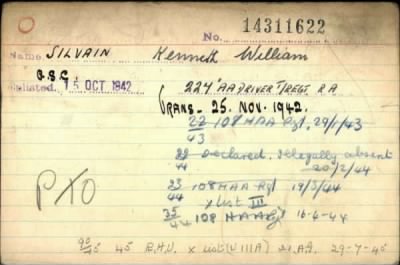 No. 14311622
Name SILVAIN Kenneth William
G.S.C.
Enlisted. 15 OCT 1942 224 A A DRIVER T/REGT. R A
TRANS - 25. NOV. 1942.
22/43 108 HAA Rgt. 29/1/43
22/44 Declared illegally absent 20/2/44
23/44 108 HAA Rgt 19/3/44
x List III
35/44 108 HAA Rgt 16-6-44
PTO
90/45 45 R.H.U. x List (VIIIA) 21.A.G. 29-7-45